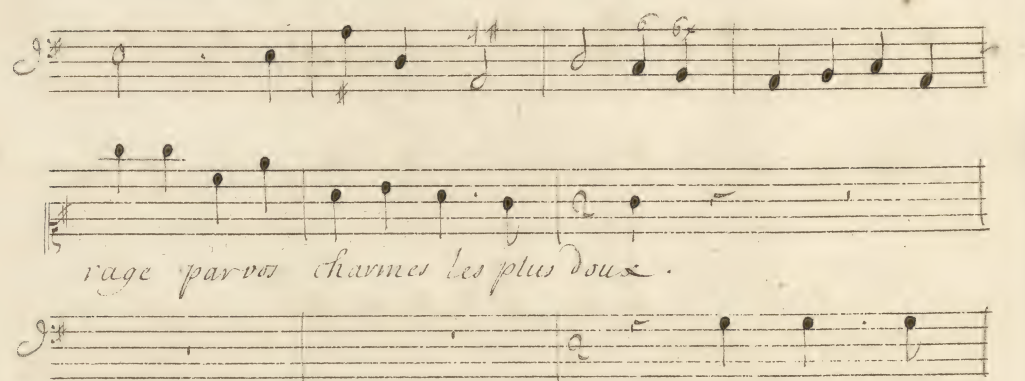 4 # 6 6x
rage par vos charmes les plus doux.
2
2